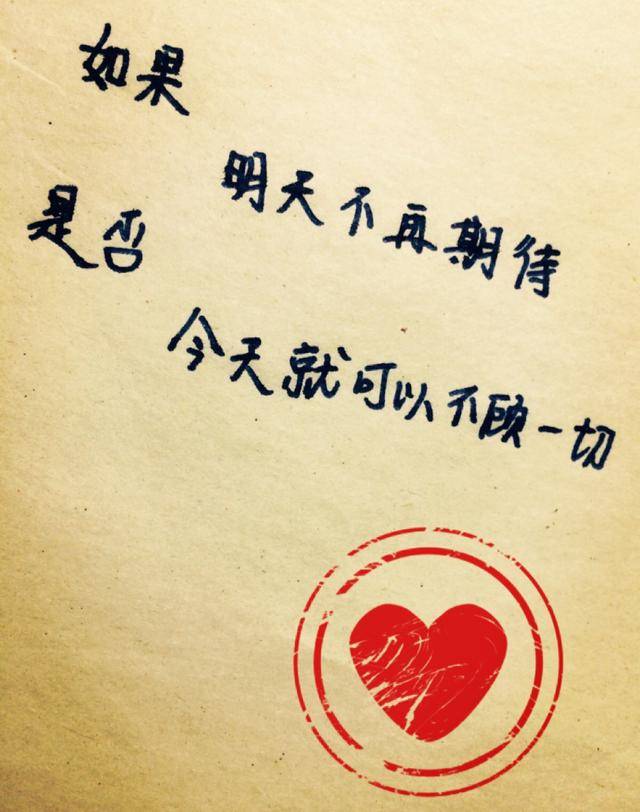 如果
明天不再期待
是否
今天就可以不顾一切